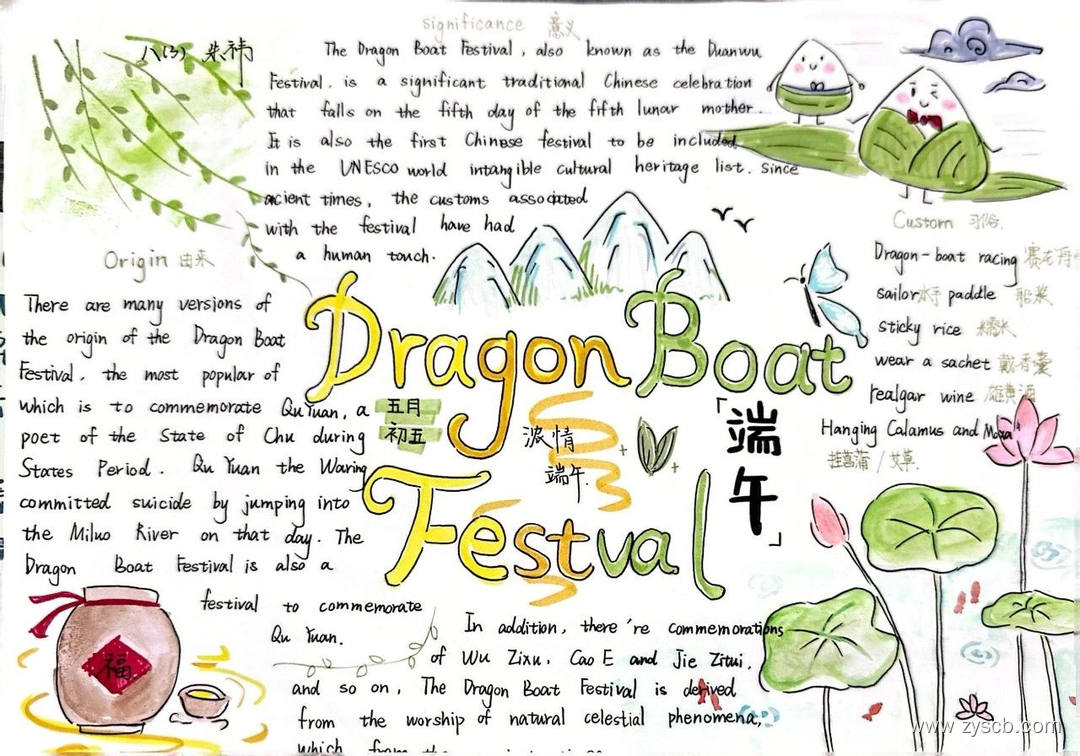 significance 意义
八(3)
The Dragon Boat Festival, also known as the Duanwu
Festival. is a significant traditional Chinese celebration
that falls on the fifth day of the fifth lunar mother.
It is also the first Chinese festival to be included
in the UNESCO world intangible cultural heritage list. since
acient times, the customs associated
with the festival have had
a human touch.
Origin 由来
There are many versions of
the origin of the Dragon Boat
Festival. the most popular of
which is to commemorate Qu Yuan, a
poet of the State of Chu during
States Period. Qu Yuan the Waring
committed suicide by jumping into
the Miluo River on that day. The
Dragon Boat Festival is also a
festival to commemorate
Qu Yuan.
Dragon Boat
Festval
五月
初五
浓情
端午.
「端午」
Custom 习俗.
Dragon-boat racing 赛龙舟
sailor水手 paddle 船桨
sticky rice 糯米
wear a sachet 戴香囊
realgar wine 雄黄酒
Hanging Calamus and Moxa
挂菖蒲/艾草.
福
In addition, there're commemorations
of Wu Zixu, Cao E and Jie Zitui.
and so on, The Dragon Boat Festival is derived
from the worship of natural celestial phenomena,
which from the
www.zyscb.com